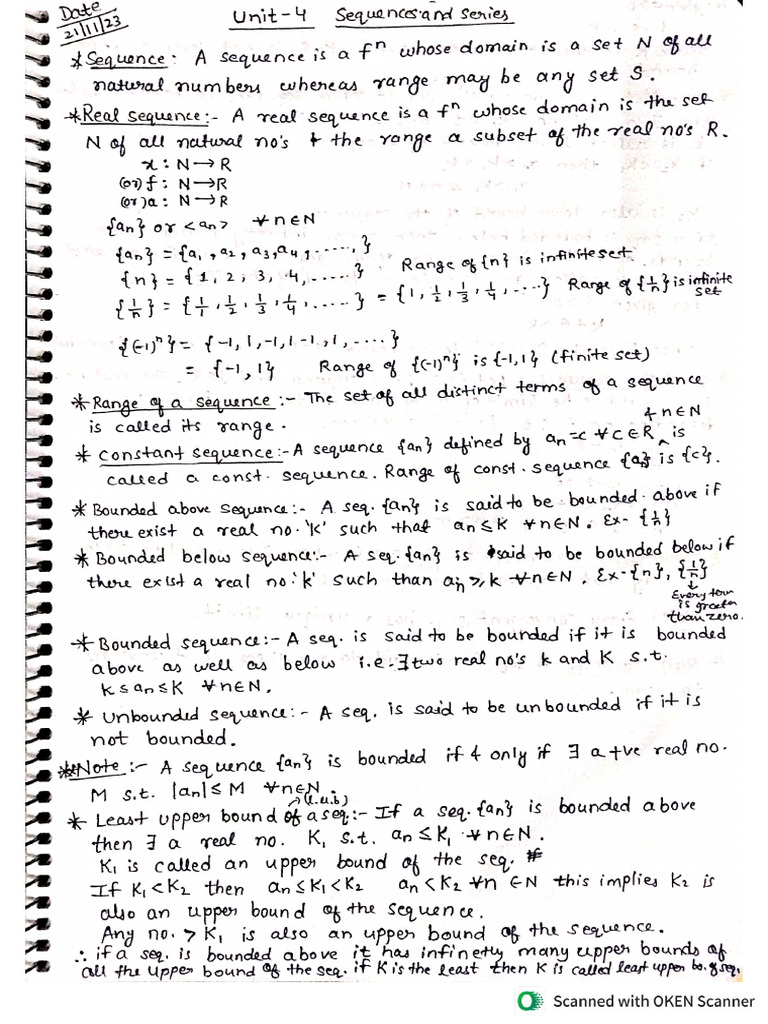 Date
21/11/23
Unit-4 Sequences and series
* Sequence: A sequence is a fⁿ whose domain is a set N of all
natural numbers whereas range may be any set S.
* Real sequence:- A real sequence is a fⁿ whose domain is the set
N of all natural no's & the range a subset of the real no's R.
x : N → R
(or) f : N → R
(or) a : N → R
{an} or <an> ∀ n ∈ N
{an} = {a₁, a₂, a₃, a₄, ......, }
{n} = {1, 2, 3, 4, ......} Range of {n} is infinite set.
{1/n} = {1/1, 1/2, 1/3, 1/4, ......} = {1, 1/2, 1/3, 1/4, ...} Range of {1/n} is infinite
set
{(-1)ⁿ} = {-1, 1, -1, 1 -1, 1, ....}
= {-1, 1} Range of {(-1)ⁿ} is {-1,1} (finite set)
* Range of a sequence :- The set of all distinct terms of a sequence
is called its range.
& n∈N
* constant sequence:- A sequence {an} defined by an=c ∀ c∈R ^ is
called a const. sequence. Range of const. sequence {an} is {c}.
* Bounded above sequence:- A seq. {an} is said to be bounded above if
there exist a real no. 'K' such that an≤K ∀n∈N. Ex- {1/n}
* Bounded below sequence:- A seq. {an} is said to be bounded below if
there exist a real no. 'k' such than an ≥ k ∀n∈N. Ex-{n}, {1/n}
↓
Every term
is greater
than zero.
* Bounded sequence:- A seq. is said to be bounded if it is bounded
above as well as below i.e. ∃ two real no's k and K s.t.
k ≤ an ≤ K ∀n∈N.
* Unbounded sequence:- A seq. is said to be unbounded if it is
not bounded.
* Note :- A sequence {an} is bounded if & only if ∃ a +ve real no.
M s.t. |an| ≤ M ∀n∈N.
(l.u.b)
* Least upper bound of a seq:- If a seq. {an} is bounded above
then ∃ a real no. K₁ s.t. an ≤ K₁ ∀n∈N.
K₁ is called an upper bound of the seq.
If K₁<K₂ then an≤K₁<K₂ an<K₂ ∀n ∈N this implies K₂ is
also an upper bound of the sequence.
Any no. > K₁ is also an upper bound of the sequence.
∴ if a seq. is bounded above it has infinetly many upper bounds of
all the upper bound of the seq. if K is the least then K is called least upper bo. of seq.
Scanned with OKEN Scanner